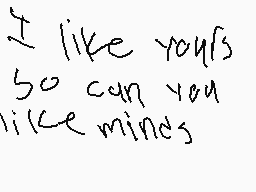 I like yours
so can you
like mines